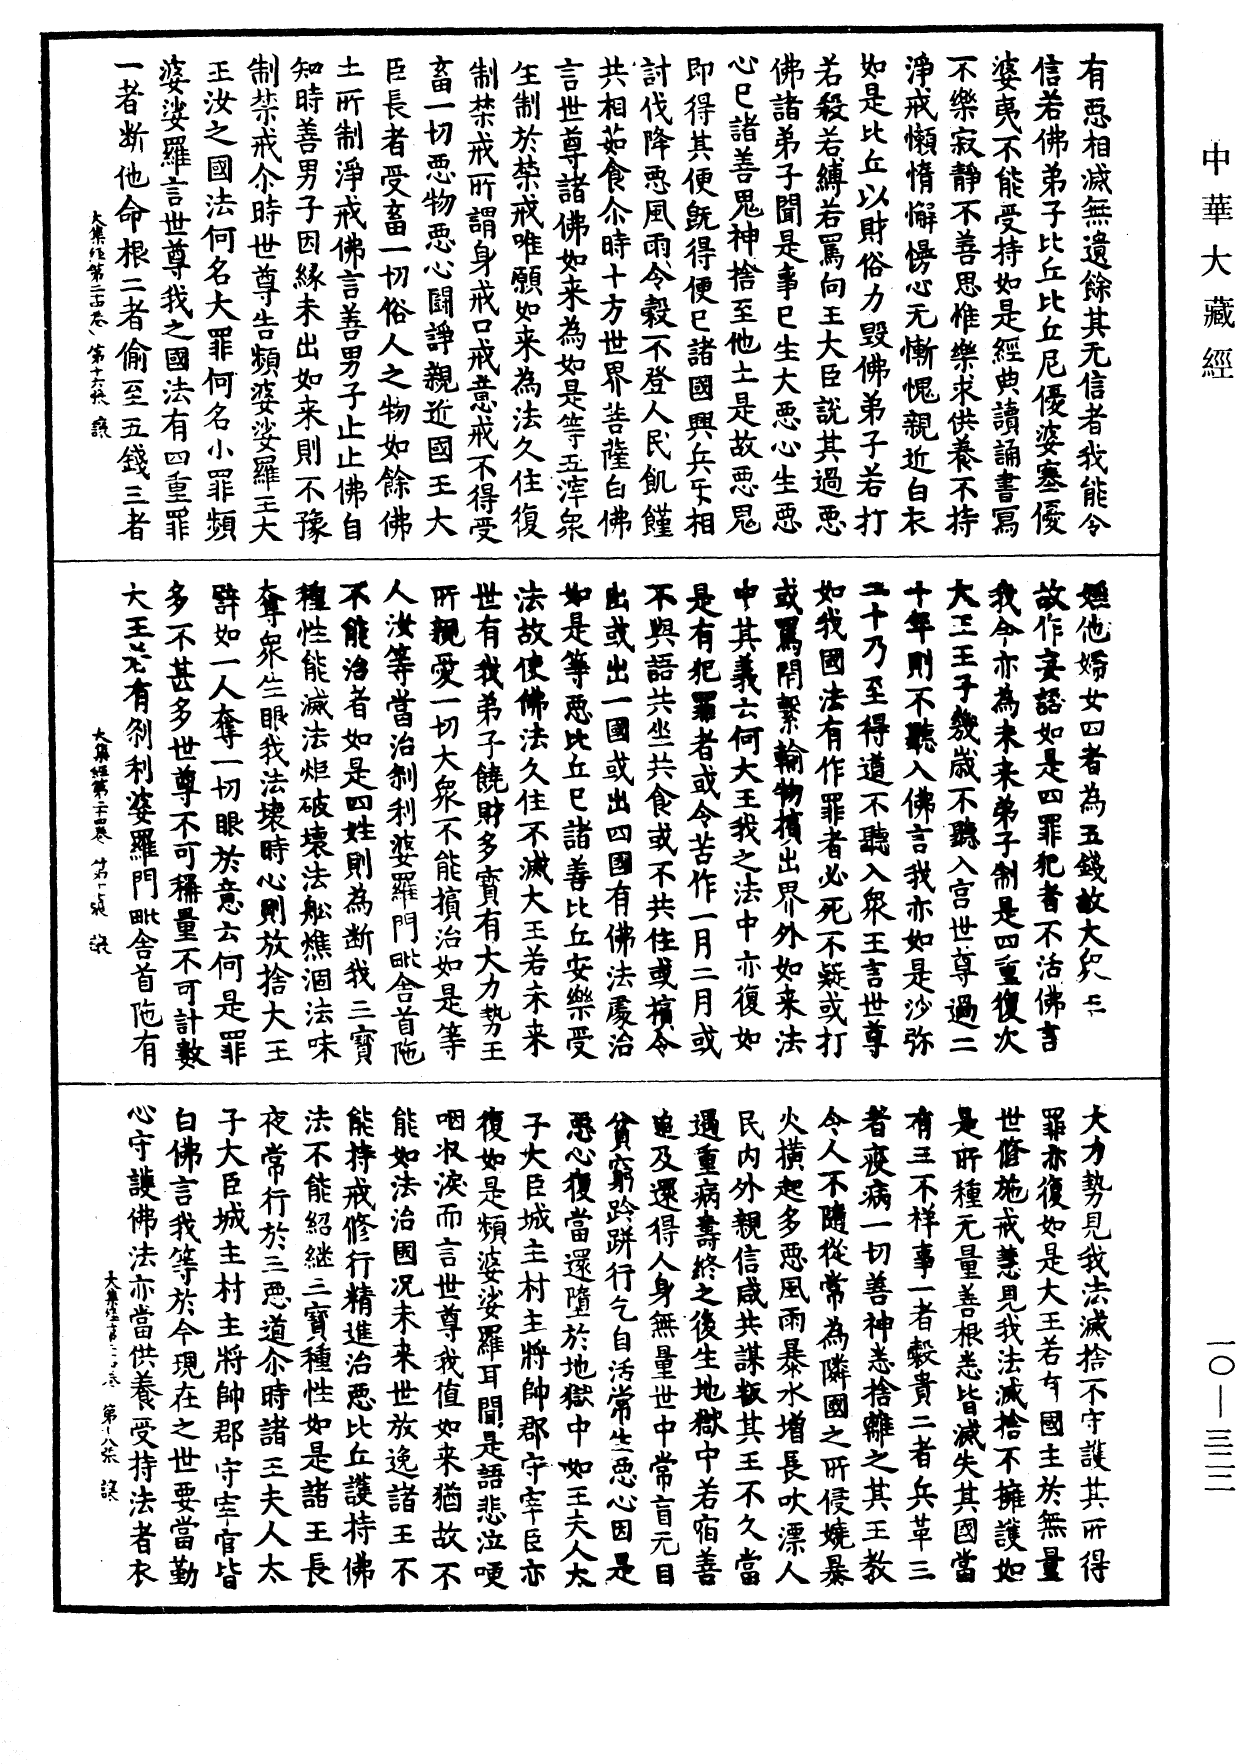 中華大藏經
有惡相滅無遺餘其无信者我能令
信若佛弟子比丘比丘尼優婆塞優
婆夷不能受持如是經典讀誦書寫
不樂寂靜不善思惟樂求供養不持
淨戒懶惰懈慢心无慚愧親近白衣
如是比丘以財俗力毀佛弟子若打
若殺若縛若罵向王大臣說其過惡
佛諸弟子聞是事已生大惡心生惡
心已諸善鬼神捨至他土是故惡鬼
即得其便旣得便已諸國興兵㸦相
討伐降惡風雨令穀不登人民飢饉
共相茹食尒時十方世界菩薩白佛
言世尊諸佛如来為如是等五滓衆
生制於禁戒唯願如来為法久住復
制禁戒所謂身戒口戒意戒不得受
畜一切惡物惡心鬪諍親近國王大
臣長者受畜一切俗人之物如餘佛
土所制淨戒佛言善男子止止佛自
知時善男子因緣未出如来則不豫
制禁戒尒時世尊告頻婆娑羅王大
王汝之國法何名大罪何名小罪頻
婆娑羅言世尊我之國法有四重罪
一者断他命根二者偷至五錢三者
大集經第二十四卷 第十六張 讓
婬他婦女四者為五錢故大衆王
故作妄語如是四罪犯者不活佛言
我今亦為未来弟子制是四重復次
大王王子幾歲不聽入宫世尊過二
十年則不聽入佛言我亦如是沙弥
二十乃至得道不聽入衆王言世尊
如我國法有作罪者必死不疑或打
或罵閇繫輸物擯出界外如来法
中其義云何大王我之法中亦復如
是有犯罪者或令苦作一月二月或
不與語共坐共食或不共住或擯令
出或出一國或出四國有佛法處治
如是等惡比丘已諸善比丘安樂受
法故使佛法久住不滅大王若未来
世有我弟子饒財多寶有大力勢王
所親愛一切大衆不能擯治如是等
人汝等當治刹利婆羅門毗舍首陁
不能治者如是四姓則為断我三寶
種性能滅法炬破壞法舩燋涸法味
奪衆生眼我法壞時心則放捨大王
譬如一人奪一切眼於意云何是罪
多不甚多世尊不可稱量不可計數
大王若有刹利婆羅門毗舍首陁有
大集經第二十四卷 第十七張 讓
大力勢見我法滅捨不守護其所得
罪亦復如是大王若有國主於無量
世修施戒慧見我法滅捨不擁護如
是所種无量善根悉皆滅失其國當
有三不样事一者穀貴二者兵革三
者疫病一切善神悉捨離之其王教
令人不隨從常為隣國之所侵嬈暴
火橫起多惡風雨暴水增長吹漂人
民内外親信咸共謀叛其王不久當
遇重病壽終之後生地獄中若宿善
追及還得人身無量世中常盲无目
貧窮跉跰行乞自活常生惡心因是
惡心復當還墮於地獄中如王夫人太
子大臣城主村主將帥郡守宰臣亦
復如是頻婆娑羅耳聞是語悲泣哽
咽収淚而言世尊我值如来猶故不
能如法治國况未来世放逸諸王不
能持戒修行精進治惡比丘護持佛
法不能紹継三寶種性如是諸王長
夜常行於三惡道尒時諸王夫人太
子大臣城主村主將帥郡守宰官皆
白佛言我等於今現在之世要當勤
心守護佛法亦當供養受持法者衣
大集經第二十四卷 第十八張 讓
一〇—三二二